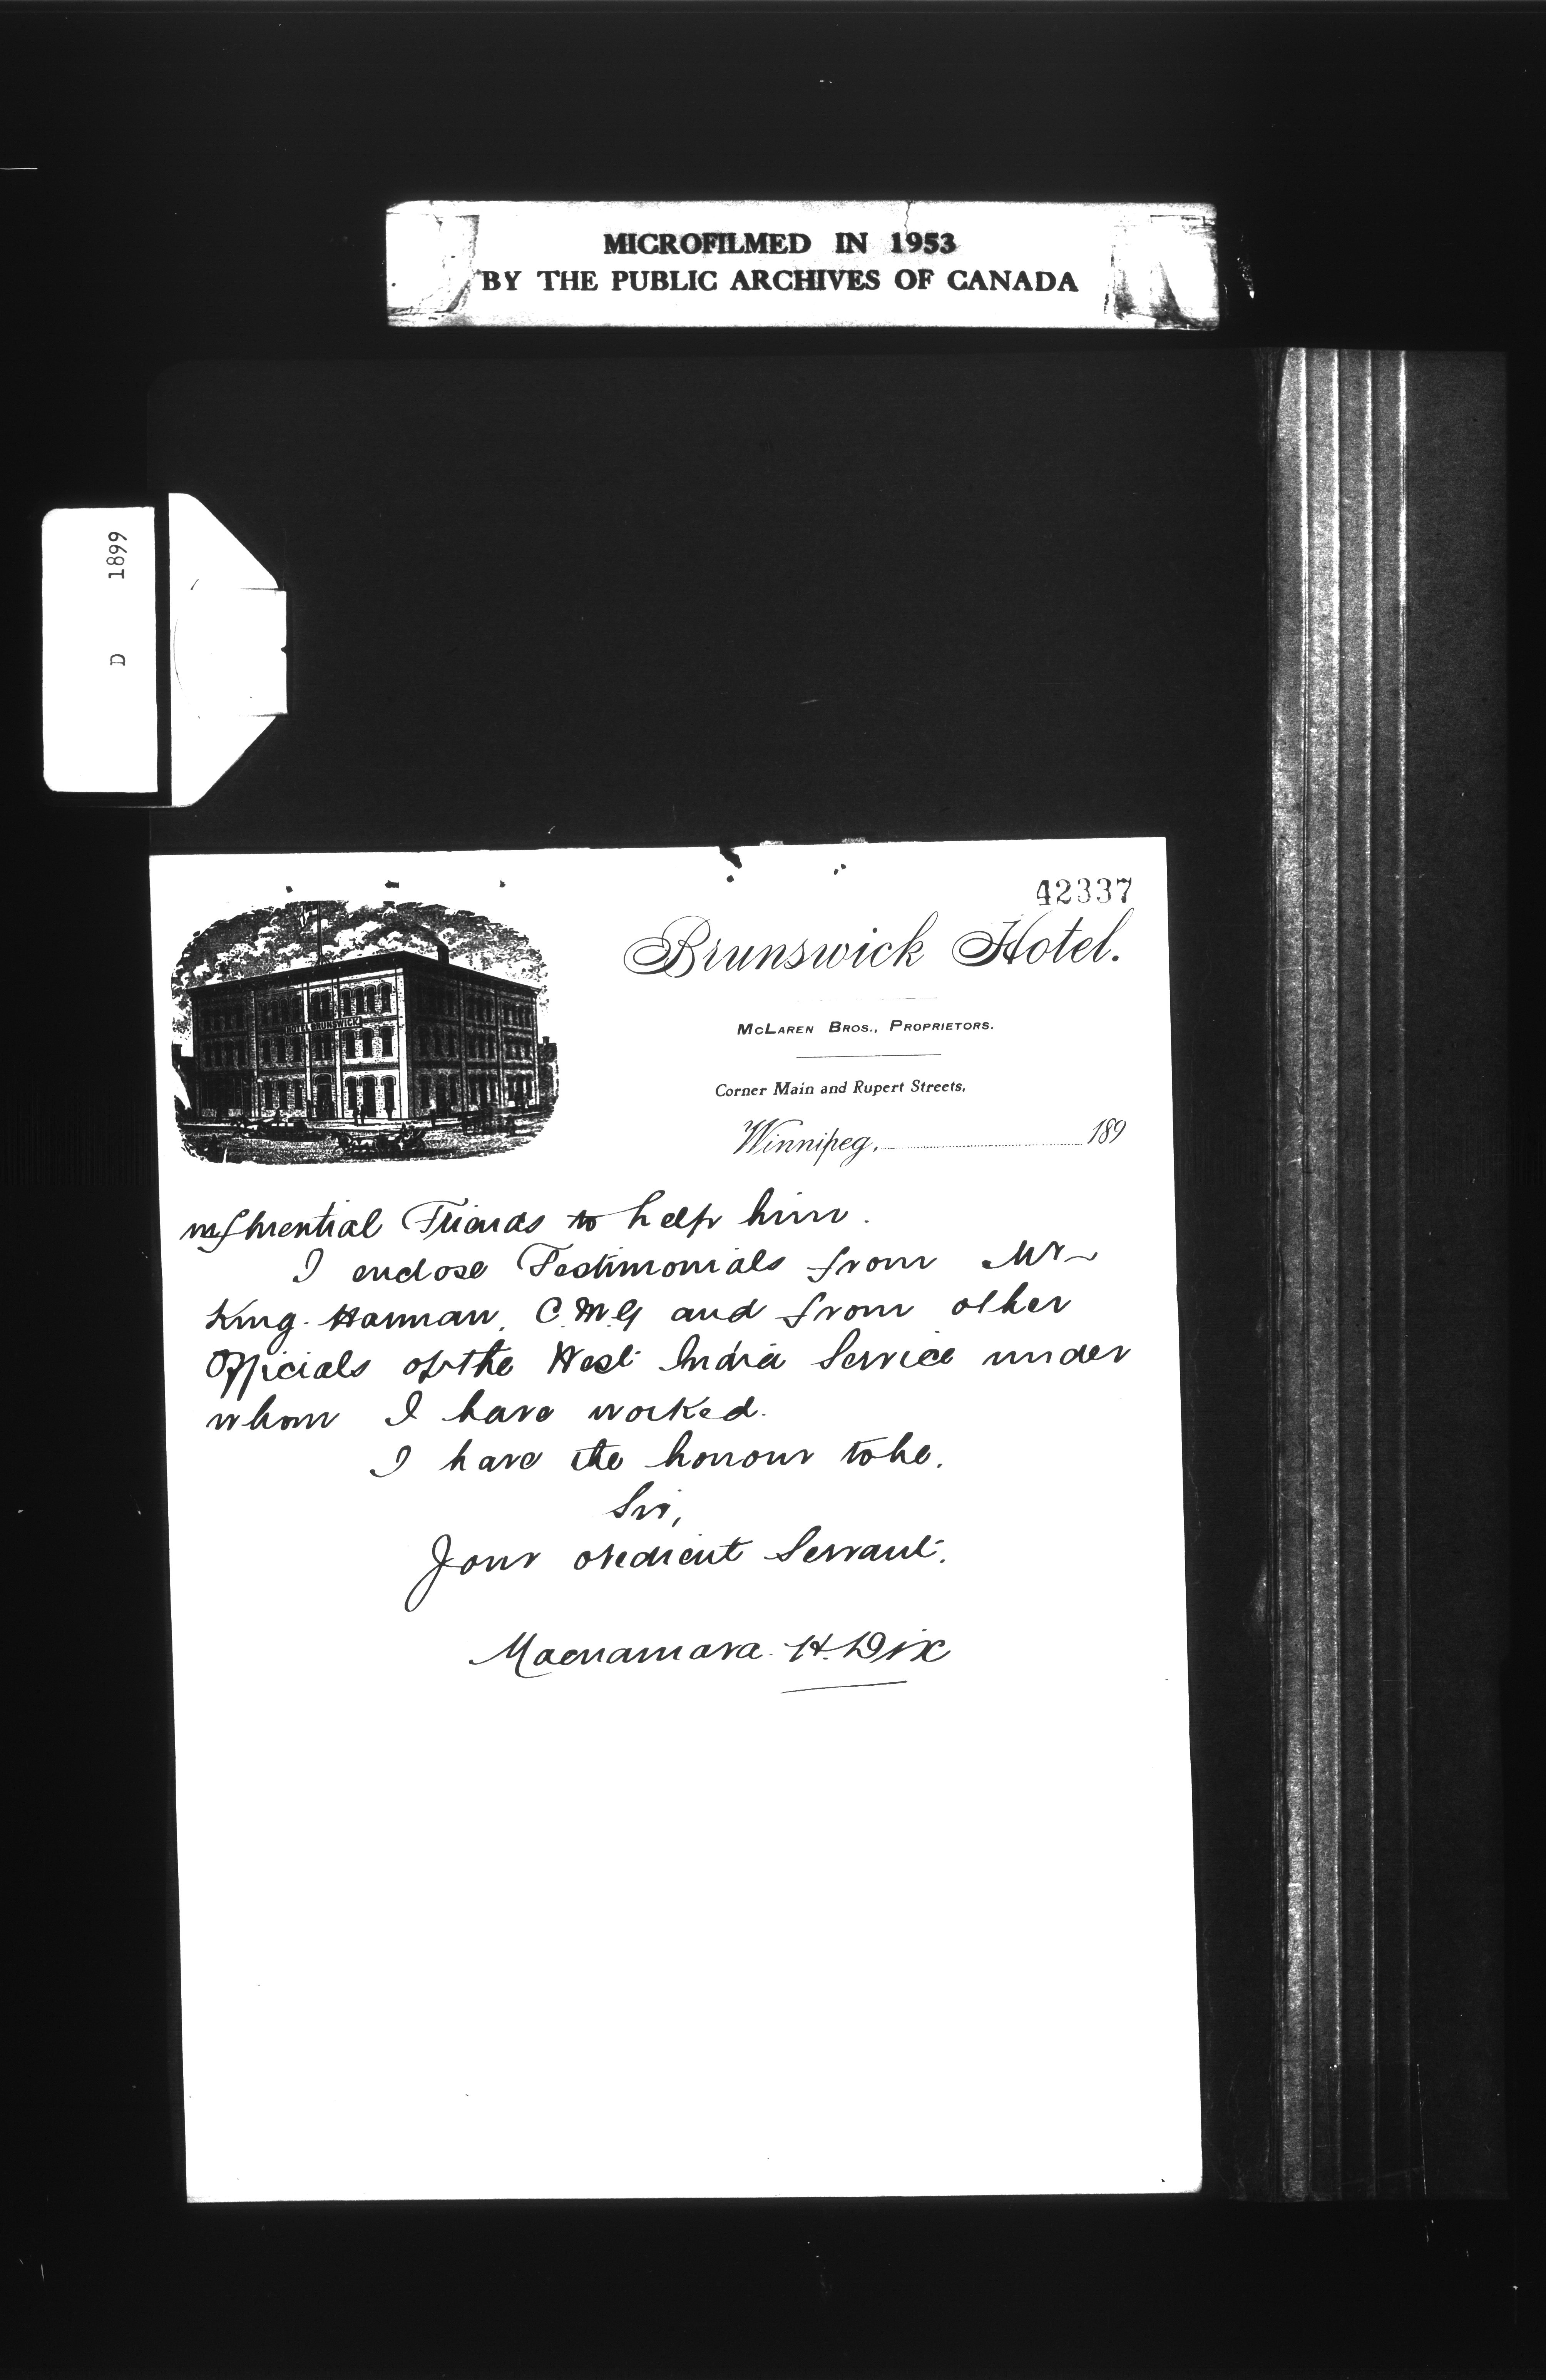 MICROFILMED IN 1953
BY THE PUBLIC ARCHIVES OF CANADA
D 1899
42337
HOTEL BRUNSWICK
Brunswick Hotel.
McLaren Bros., Proprietors.
Corner Main and Rupert Streets,
Winnipeg, 189
influential Friends to help him.
I enclose Testimonials from Mr
King-Harman, C.M.G and from other
Officials of the West India Service under
whom I have worked.
I have the honour to be.
Sir,
Your obedient Servant.
Macnamara H. Dix